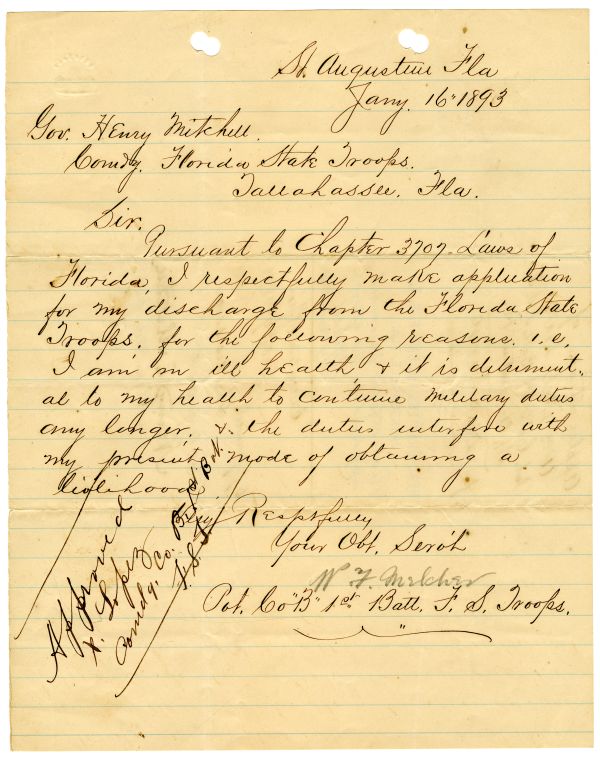 St. Augustine Fla
Jany. 16" 1893
Gov. Henry Mitchell.
Comdg. Florida State Troops.
Tallahassee. Fla.
Sir.
Pursuant to Chapter 3707 Laws of
Florida, I respectfully make application
for my discharge from the Florida State
Troops. for the following reasons. i.e.
I am in ill health & it is detriment-
al to my health to continue military duties
any longer, & the duties interfere with
my present mode of obtaining a
livlihood
Very Respctfully
Your Obt. Servt
W. F. Melcher
Pvt. Co "B" 1st Batt. F. S. Troops.
Approved
X. Lopez
Comdg. Co. B 1st Bat.
F.S.T.